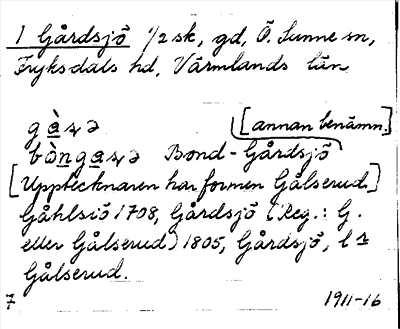 1 Gårdsjö 1/2 sk, gd, Ö. Sunne sn,
Fryksdals hd, Värmlands län
[annan benämn.]
Bond-Gårdsjö
[Upptecknaren har formen Gålserud]
Gåhlsiö 1708, Gårdsjö (Reg.: G.
eller Gålserud) 1805, Gårdsjö, l
Gålserud.
7 1911-16